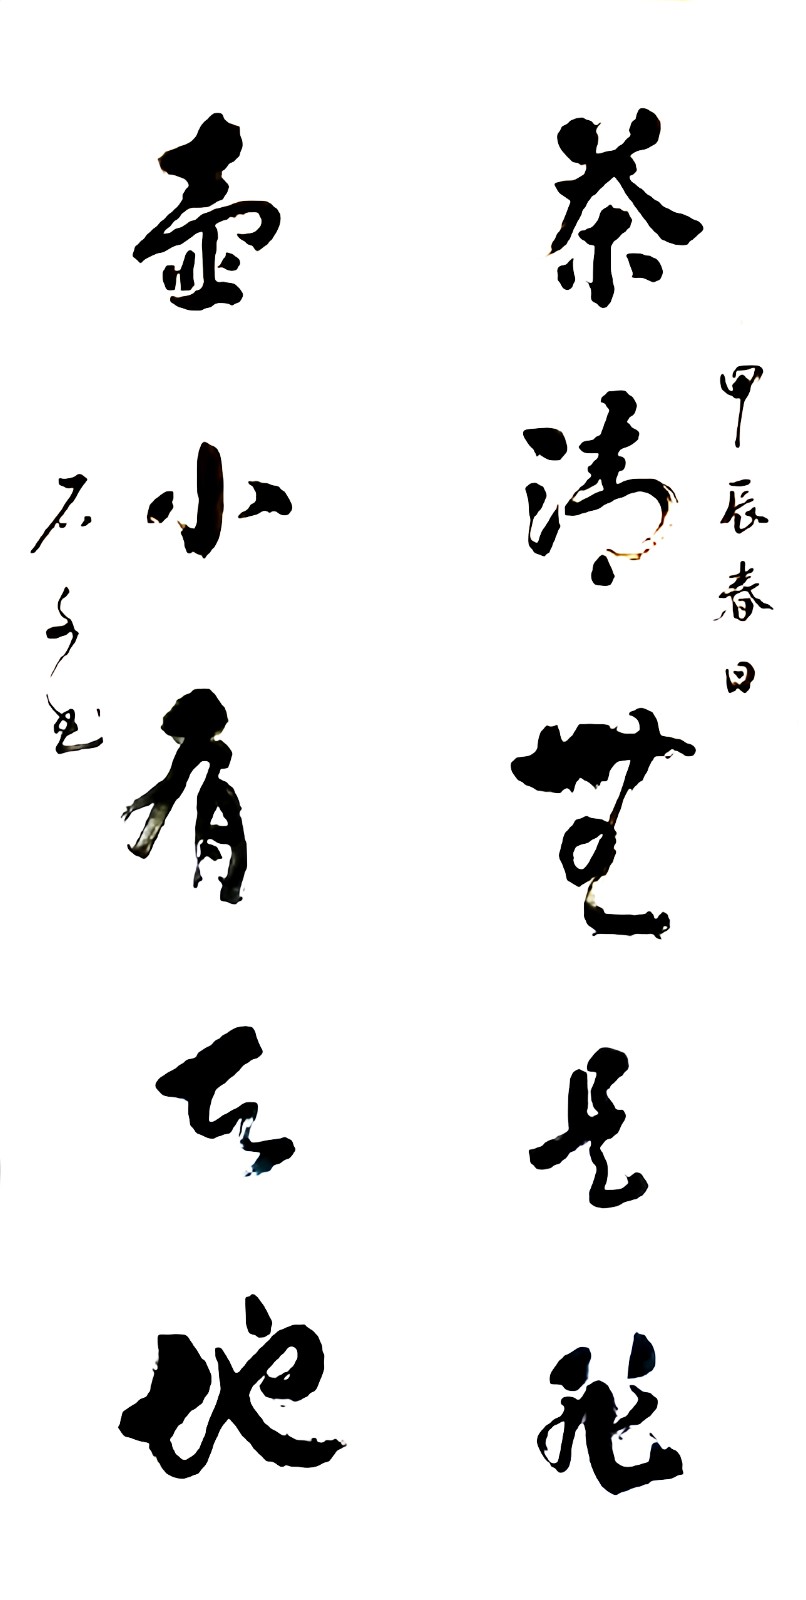 甲辰春日
茶清無是非
壺小有天地
石
书